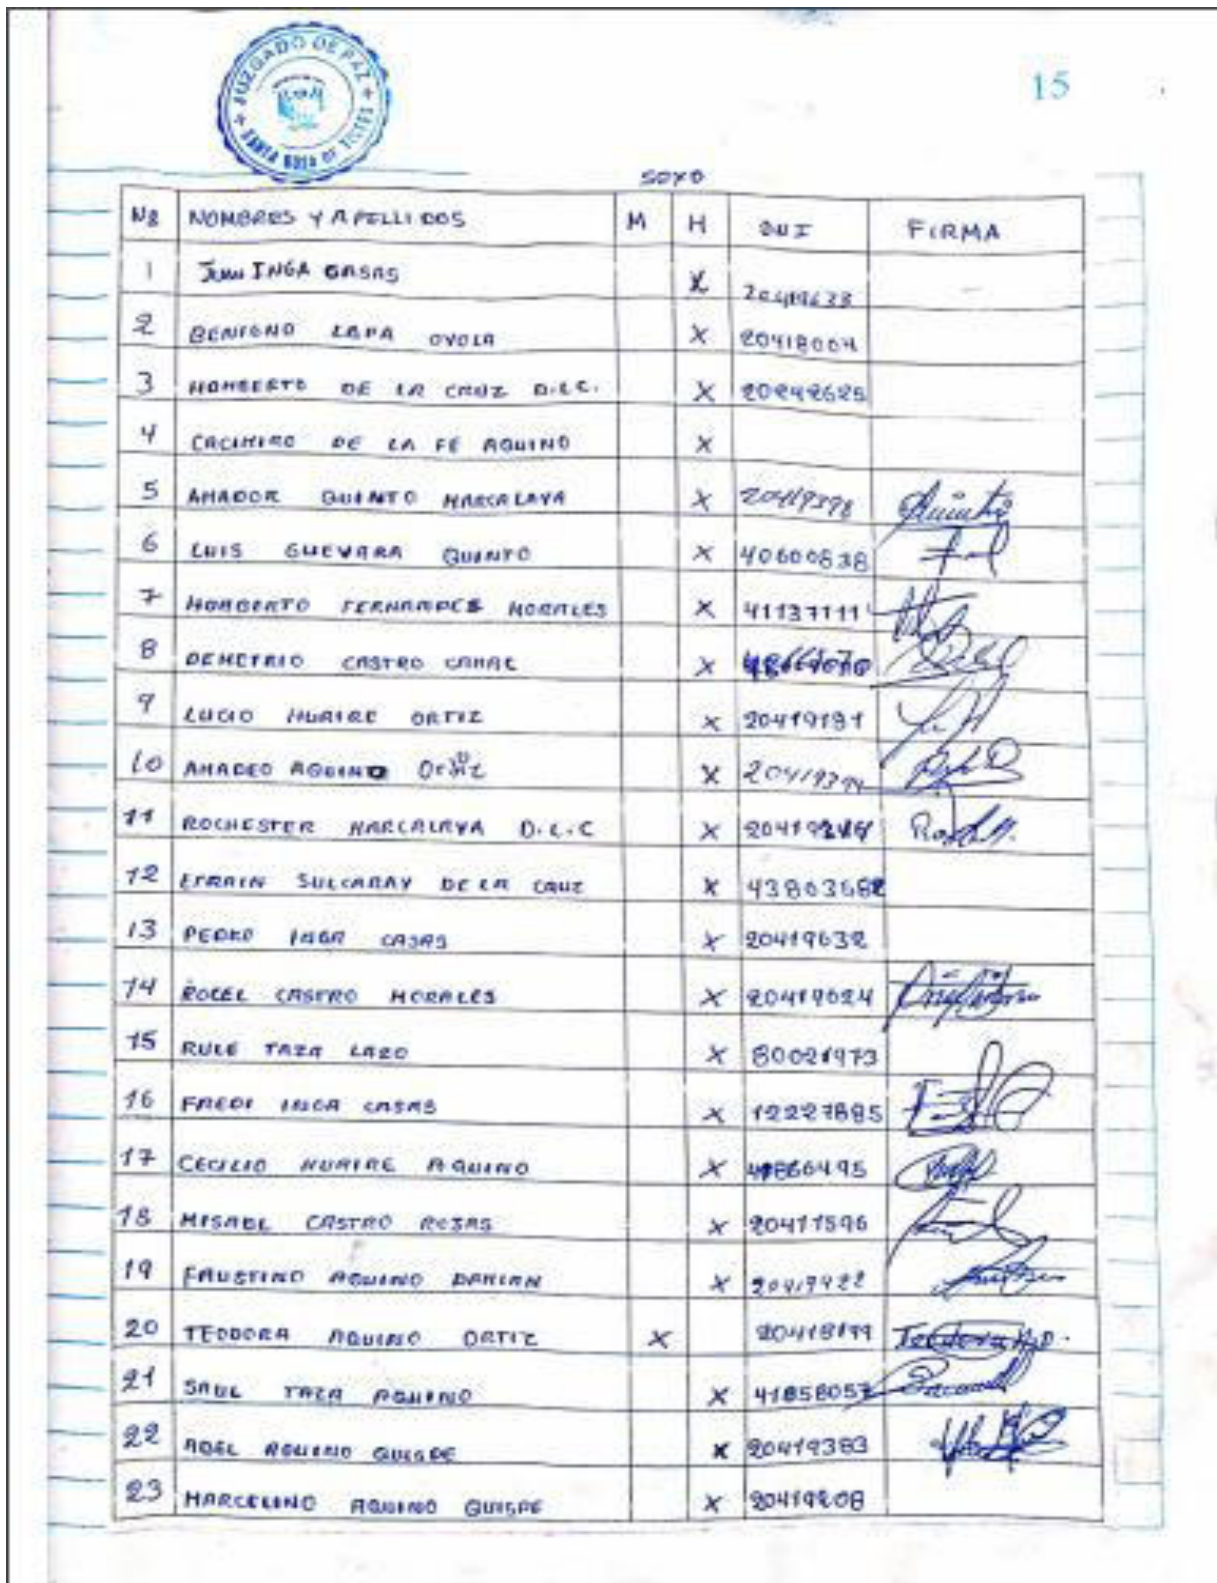 JUZGADO DE PAZ
SANTA ROSA DE
15
SOXO
Nº NOMBRES Y APELLIDOS M H DNI FIRMA
1 JUAN INGA CASAS X 20419633
2 BENIGNO LAPA OYOLA X 20418004
3 HOMBERTO DE LA CRUZ D.L.C. X 20242625
4 CACIMIRO DE LA FE AQUINO X
5 AMADOR QUINTO MARCALAYA X 20419398
6 LUIS GUEVARA QUINTO X 40600838
7 HOMBERTO FERNANDES MORALES X 41137111
8 DEMETRIO CASTRO CAMAC X
9 LUCIO HUAIRE ORTIZ X 20419181
10 AMADEO AQUINO ORTIZ X 20419394
11 ROCHESTER MARCALAYA D.L.C X
12 EFRAIN SULCARAY DE LA CRUZ X 43803682
13 PEDRO INGA CASAS X 20419632
14 ROCEL CASTRO MORALES X 20419024
15 RULE TAZA LAZO X 80021973
16 FREDI INGA CASAS X 12227885
17 CECILIO HUAIRE AQUINO X 41866495
18 MISAEL CASTRO ROJAS X 20411596
19 FAUSTINO AQUINO DAMIAN X 20419422
20 TEODORA AQUINO ORTIZ X 20418199 Teodora A.O.
21 SAUL TAZA AQUINO X 41858057
22 ABEL AQUINO QUISPE X 20419383
23 MARCELINO AQUINO QUISPE X 20419208